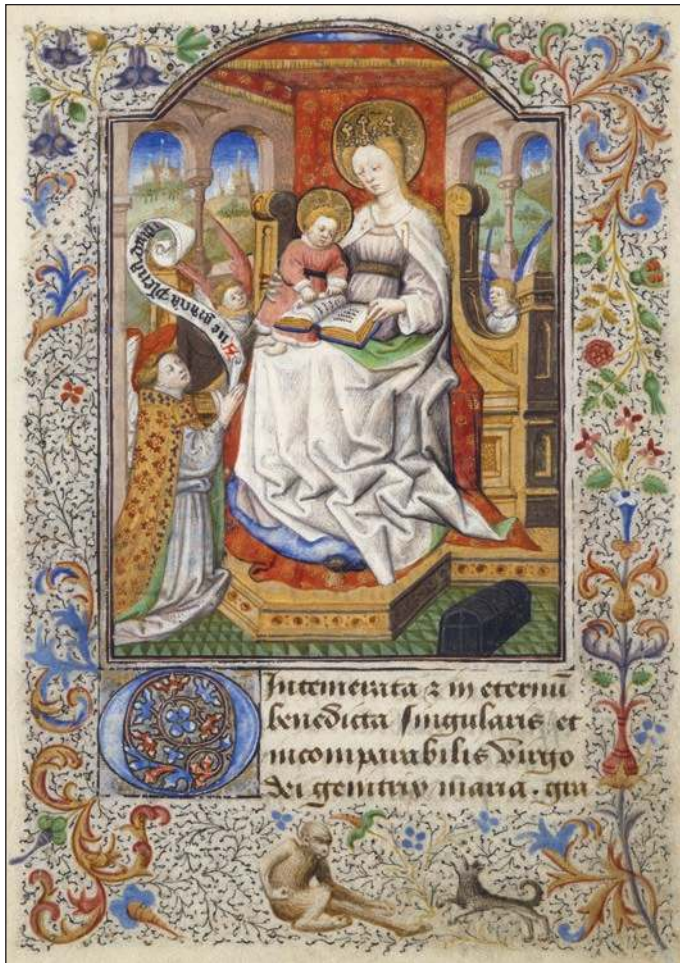 Aue gracia plena dominus
O Intemerata ⁊ in eternū
benedicta singularis et
incomparabilis virgo
dei genitrix maria. gra